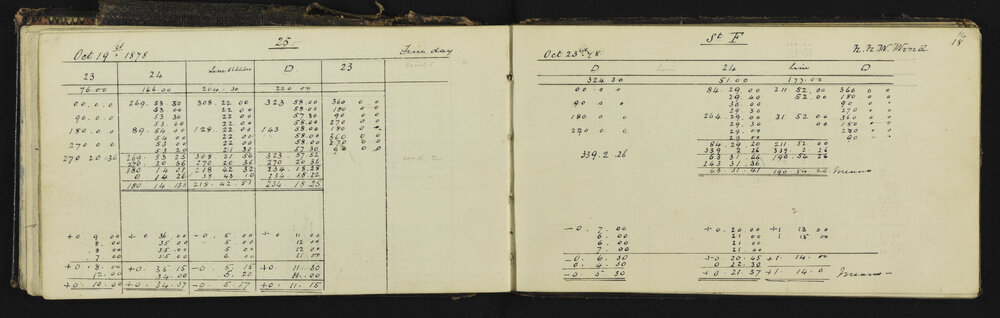 25
Oct 19th 1878 Fine day
23 24 Line Station □ 23
76.00 166.00 204.30 220.00
00.0.0 269.53.30 308.22.00 323 58.00 360 0 0
53.00 22.00 58.00 180 0 0
90.0.0 53.30 22.00 57.30 90 0 0
53.00 22.00 58.00 270 0 0
180.0.0 89.54.00 128.22.00 143 58.00 180 0 0
54.00 22.00 58.00 360 0 0
270 0 00 53.00 22.00 58.00 270 0 0
53.20 21.30 57.30 90 0 0
270 20.36 269.53.25 308 21 56 323.57.52
270 20 36 270 20 36 270 20 36
180 14 01 218 42 32 234.18.28
0 14 26 39 43 10 234.18.22
180.14.135 218.42.51 234.18.25
+0 9 00 +0 36 00 -0 5 00 +0 11 00
8.00 35 00 5 00 12 00
8.00 35.00 5 00 12 00
7 00 35 00 6 00 11 00
+0.8.00 +0.35 15 -0.5.15 +0.11.30
12.00 34.00 5 20 11.00
+0.10.00 +0.34.37 -0.5 17 +0.11.15
St F
Oct 23rd 78 N.N.W. Wind 18
□ 24 Line
324 30 51.00 177.00
00 0 0 84.29.00 211 52.00 360 0 0
29.40 52.00 180 0 0
90 0 0 36 00 90 0 0
29 30 270 0 0
180 0 0 264.29.00 31 52 00 360 0 0
29 30 00 180 0 0
270 0 0 29.00 270 0 0
29.00 90 0 0
84 29 20 211 52 00
339.2.26 339 2 26 339.2.26
63 31 46 190.54 26
243 31 36
63 31.41 190 54 26 means
-0.7.00 +0.20 00 +1 13 00
6.00 21 00 1 15 00
6.00 21.00
7.00 21.00
-0 6.30 +0 20.45 +1.14.00
0 4.30 0 22.30
-0.5.30 +0.21.37 +1.14.0 means